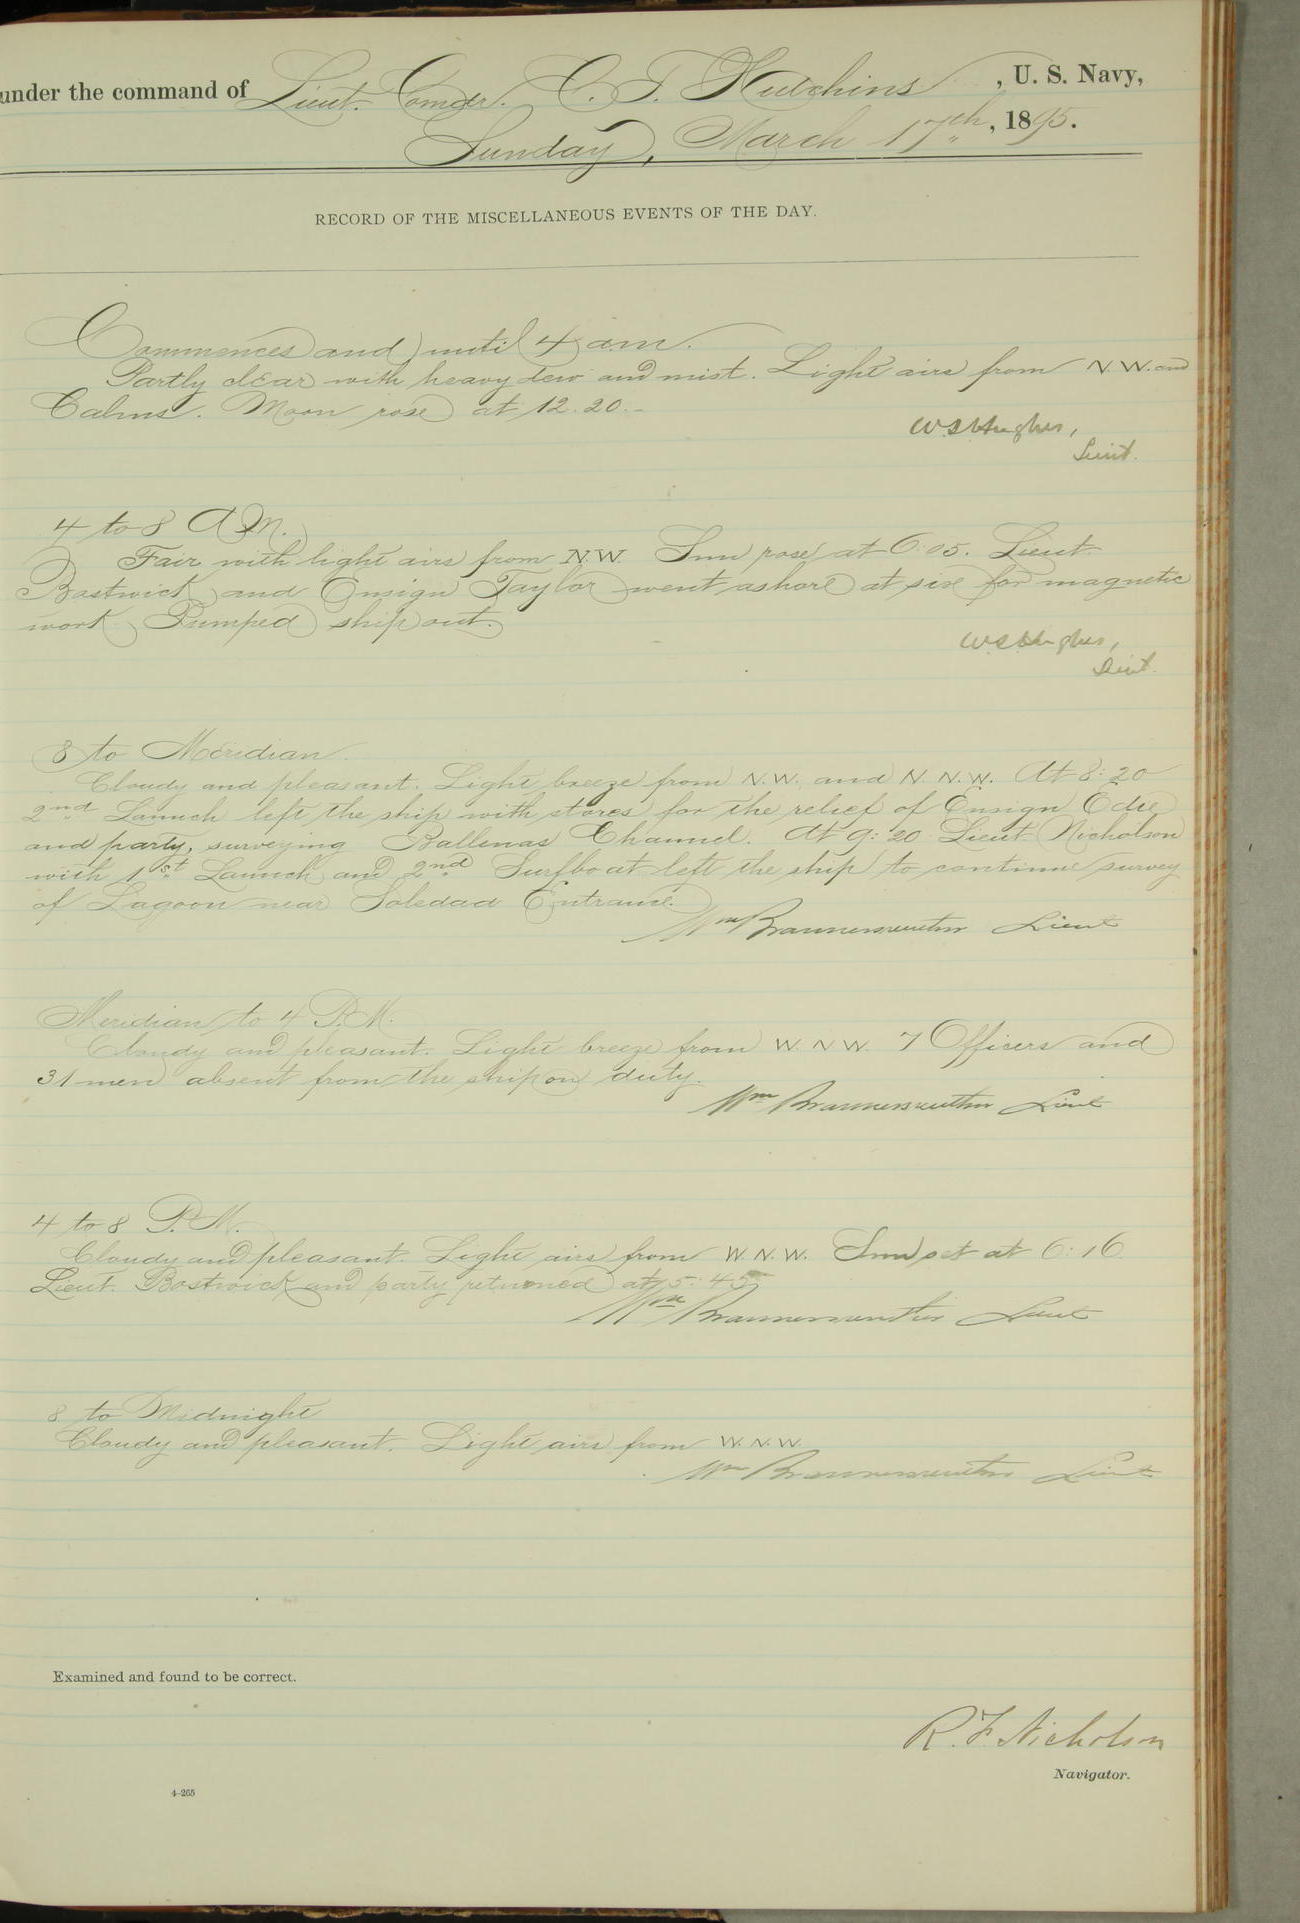 under the command of Lieut. Comdr. C. T. Hutchins, U. S. Navy,
Sunday, March 17th, 1895.
RECORD OF THE MISCELLANEOUS EVENTS OF THE DAY.
Commences and until 4 a.m.
Partly clear with heavy dew and mist. Light airs from N.W. and
Calms. Moon rose at 12.20.-
W S Hughes,
Lieut.
4 to 8 A.M.
Fair with light airs from N.W. Sun rose at 6.05. Lieut
Bostwick and Ensign Taylor went ashore at six for magnetic
work. Pumped ship out.
W S Hughes,
Lieut.
8 to Meridian.
Cloudy and pleasant. Light breeze from N.W. and N.N.W. At 8:20
2nd Launch left the ship with stores for the relief of Ensign Edie
and party, surveying Ballenas Channel. At 9:20 Lieut Nicholson
with 1st Launch and 2nd Surfboat left the ship to continue survey
of Lagoon near Soledad Entrance.
Wm Braunersreuther Lieut
Meridian to 4 P.M.
Cloudy and pleasant. Light breeze from W.N.W. 7 Officers and
31 men absent from the ship on duty.
Wm Braunersreuther Lieut
4 to 8 P.M.
Cloudy and pleasant. Light airs from W.N.W. Sun set at 6:16
Lieut. Bostwick and party returned at 5:45
Wm Braunersreuther Lieut
8 to Midnight
Cloudy and pleasant. Light airs from W.N.W.
Wm Braunersreuther Lieut
Examined and found to be correct.
R. F. Nicholson
Navigator.
4-265